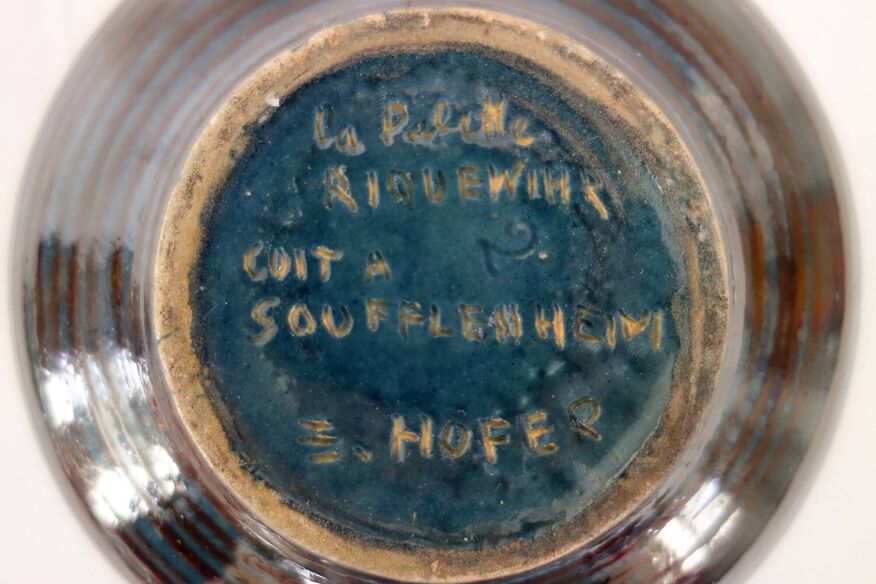 la Palette
RIQUEWIHR
2.
CUIT A
SOUFFLENHEIM
E. HOFER